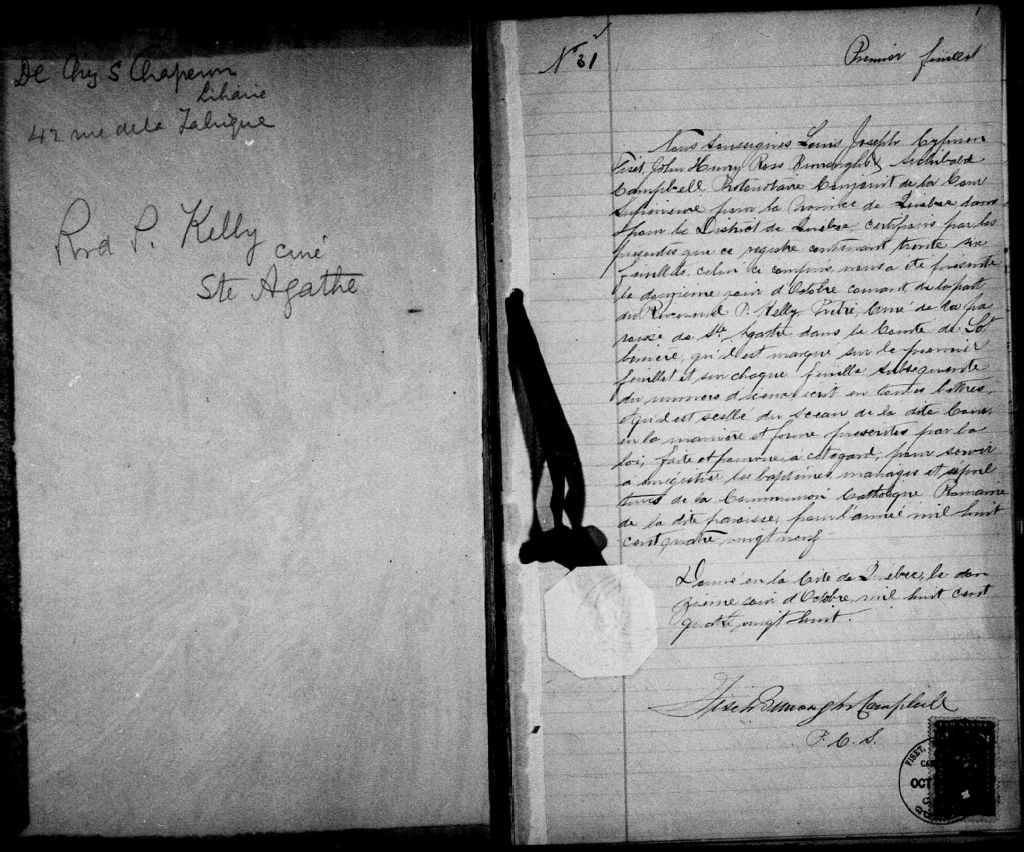 De Chs S Chaperon
Libraire
42 rue de la Fabrique
Rvd P. Kelly
curé
Ste Agathe
1
No 31
Premier feuillet
Nous soussignes Louis Joseph Cyprien
Fiset, John Henry Ross Burroughs, Archibald
Campbell Protonotaire Conjoint de la Cour
Superieure pour la Province de Québec dans
& pour le District de Québec, certifions par les
presentes que ce registre contenant trente six
feuillets, celui ci compris, nous a été presenté
le douzième jour d'Octobre courant, de la part
du Reverend P. Kelly Prêtre, Curé de la pa
roisse de Ste Agathe dans le Comté de Lot
binière, qu'il est marqué sur le premier
feuillet et sur chaque feuille subsequente
du numero d'icenx ecrit en toutes lettres,
& qu'il est scellé du sceau de la dite Cour
en la manière et forme prescrites par la
loi, faite et pourvue a cet egard, pour servir
a enregistrer les baptêmes mariages et sépul
tures de la Communion Catholique Romaine
de la dite paroisse, pour l'année mil huit
cent quatre vingt neuf
Donné en la Cité de Québec, le dou
zième jour d'Octobre, mil huit cent
quatre vingt huit.
Fiset Burroughs Campbell
P. C. S.
FISET,
OCT